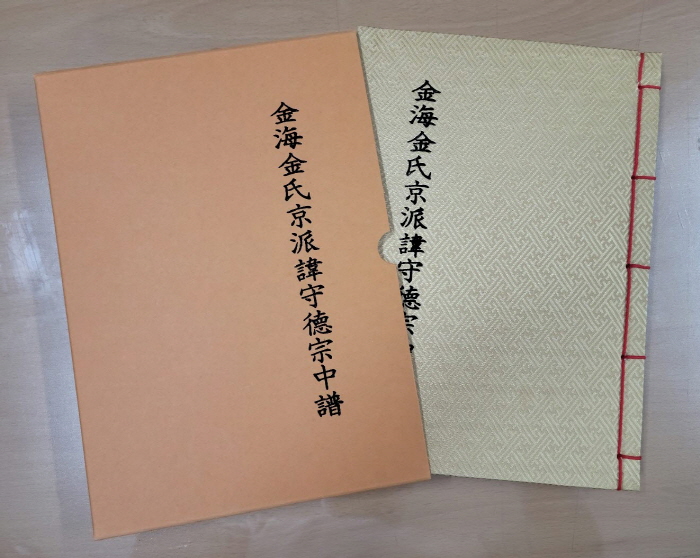 金海金氏京派諱守德宗中譜
金海金氏京派諱守德宗中